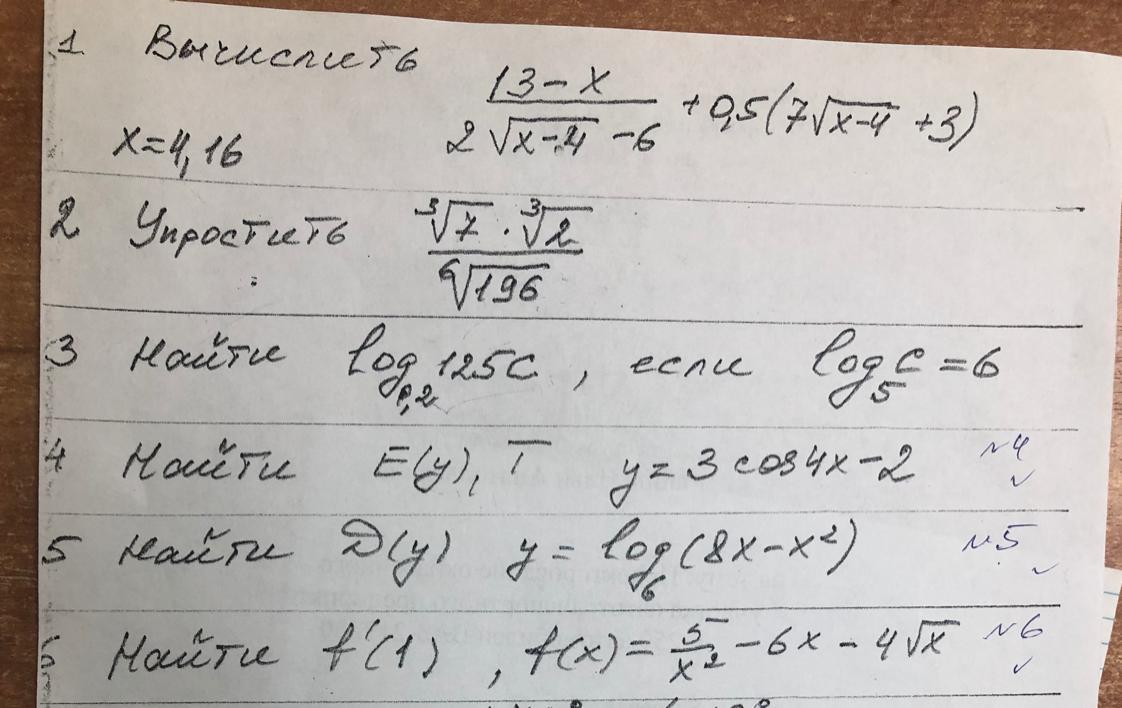 1 Вычислить
13-x / 2√(x-4) -6 + 0,5(7√(x-4) +3)
x=4,16
2 Упростить ∛7 · ∛2 / ⁶√196
3 Найти log₀,₂ 125c , если log₅ c = 6
4 Найти E(y), T y = 3 cos4x-2 №4
5 Найти D(y) y = log₆(8x-x²) №5
6 Найти f'(1) , f(x) = 5/x² -6x - 4√x №6